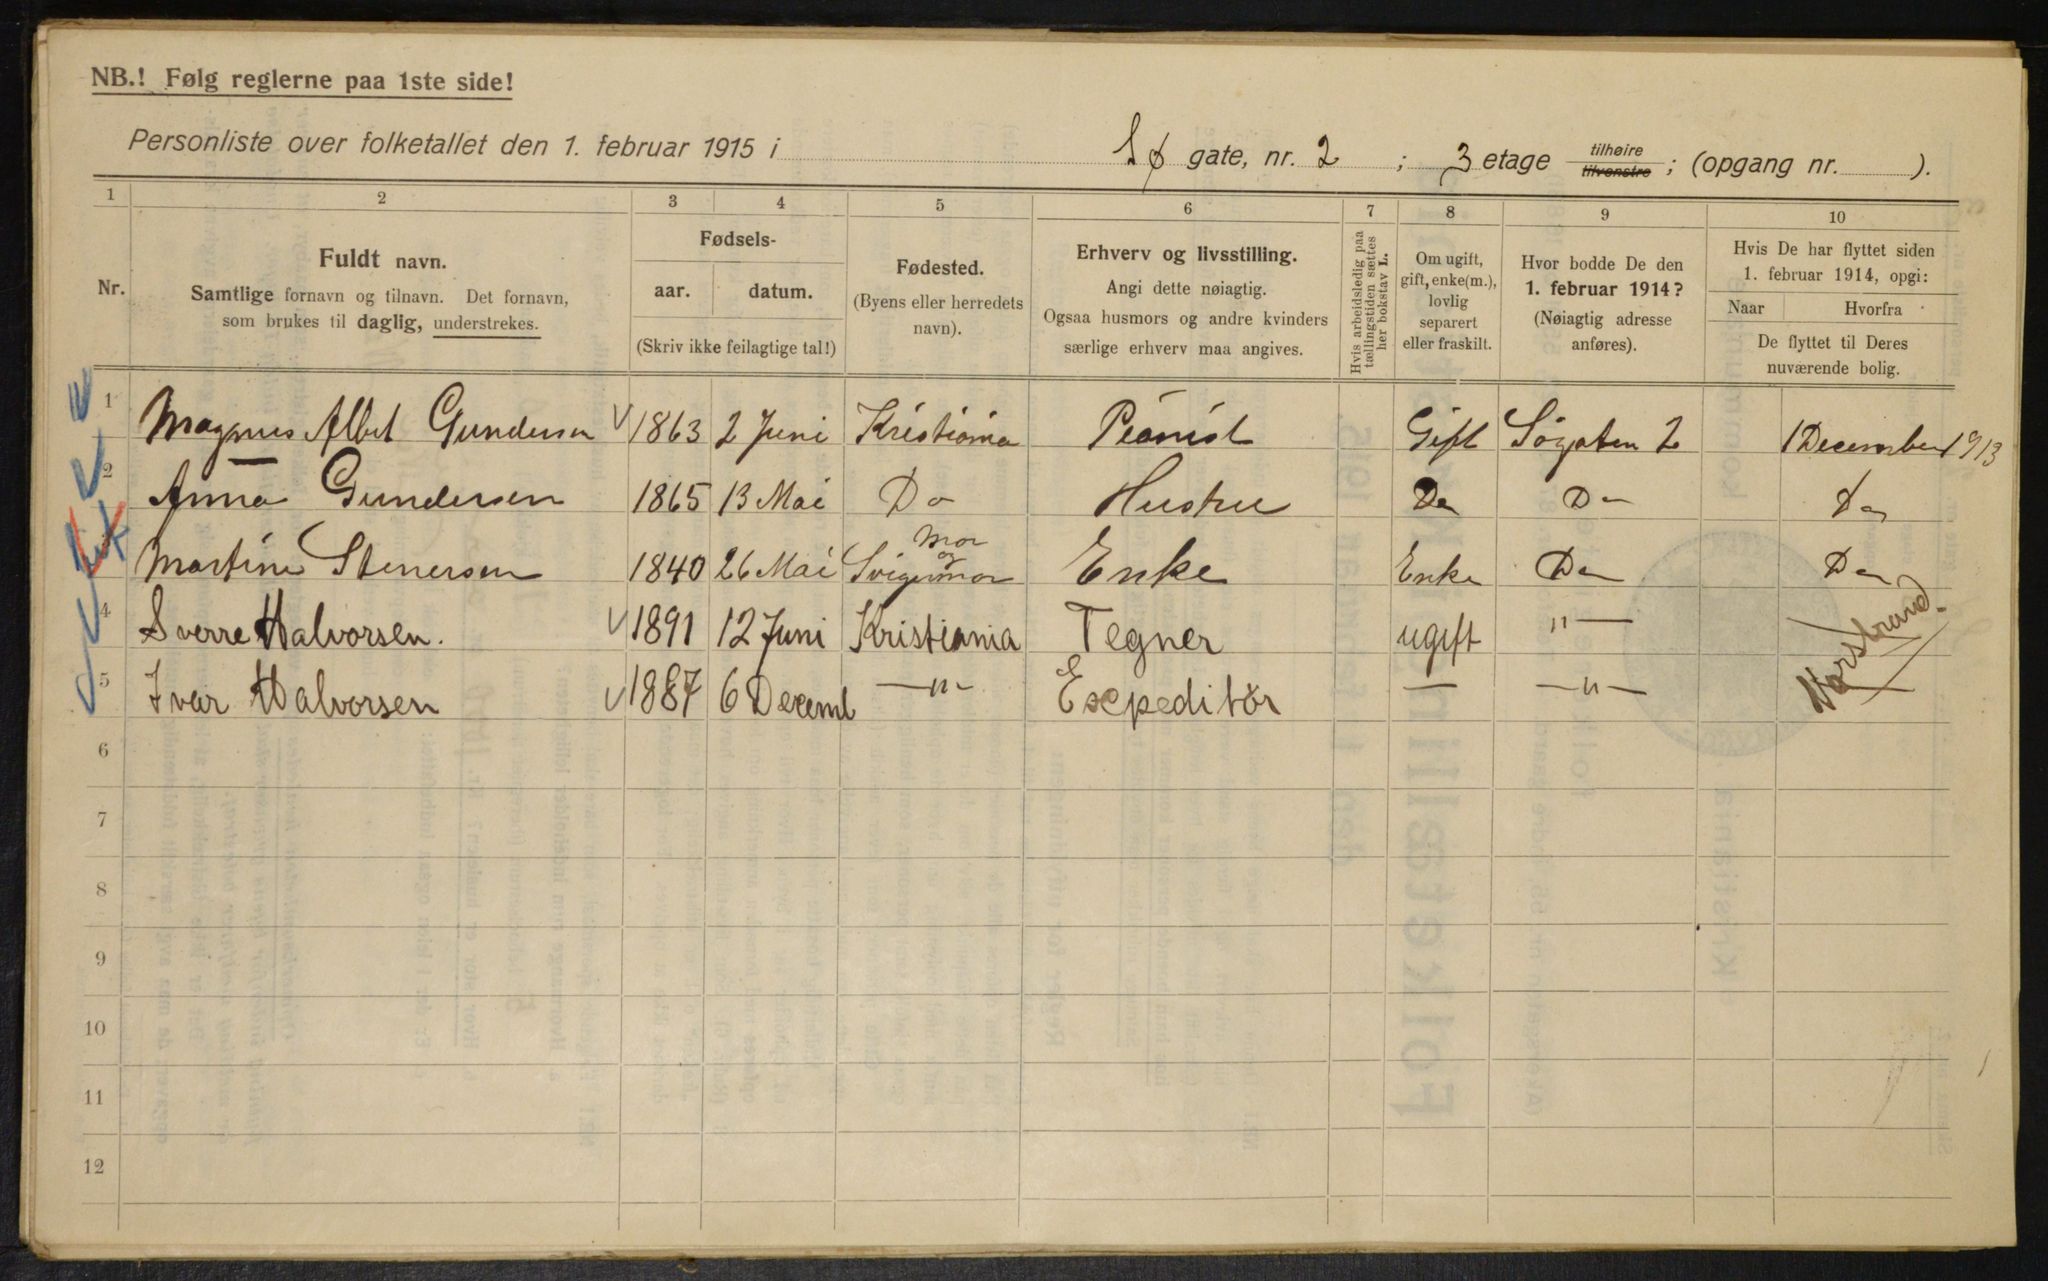 NB.! Følg reglerne paa 1ste side!
Personliste over folketallet den 1. februar 1915 i Sø gate, nr. 2 ; 3 etage tilhøire tilvenstre ; (opgang nr. ).
1 2 3 4 5 6 7 8 9 10
Nr.
Fuldt navn.
Samtlige fornavn og tilnavn. Det fornavn,
som brukes til daglig, understrekes.
Fødsels-
aar. datum.
(Skriv ikke feilagtige tal!)
Fødested.
(Byens eller herredets
navn).
Erhverv og livsstilling.
Angi dette nøiagtig.
Ogsaa husmors og andre kvinders
særlige erhverv maa angives.
Hvis arbeidsledig paa
tællingstiden sættes
her bokstav L.
Om ugift,
gift, enke(m.),
lovlig
separert
eller fraskilt.
Hvor bodde De den
1. februar 1914?
(Nøiagtig adresse
anføres).
Hvis De har flyttet siden
1. februar 1914, opgi:
Naar Hvorfra
De flyttet til Deres
nuværende bolig.
1 Magnus Albet Gundersen 1863 2 Juni Kristiania Pianist Gift Søgaten 2 1 December 1913
2 Anna Gundersen 1865 13 Mai Do Hustru Do Do Do
Martine Stenersen 1840 26 Mai Mor og Svigermor Enke Enke Do Do
4 Sverre Halvorsen. 1891 12 Juni Kristiania Tegner ugift —"—
5 Ivar Halvorsen 1887 6 Decemb —"— Exepeditør — —"—
6
7
8
9
10
11
12